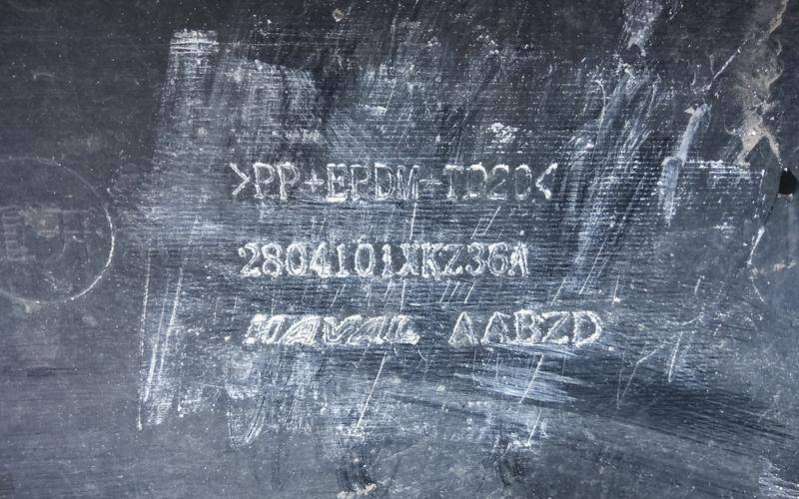 >PP+EPDM-TD20<
2804101XKZ36A
HAVAL AABZD